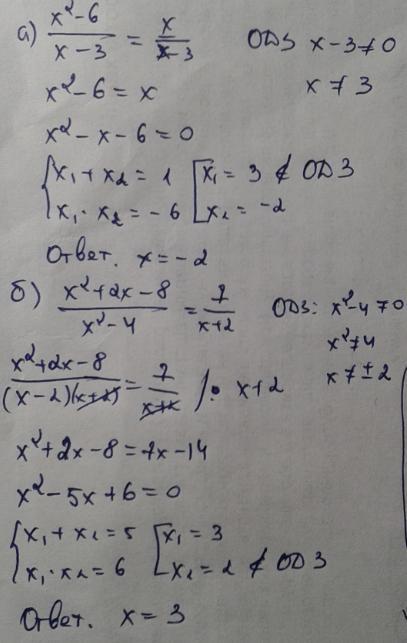 а) (x²-6)/(x-3) = x/(x-3) ОДЗ x-3≠0
x²-6=x x≠3
x²-x-6=0
{x₁+x₂=1 [x₁=3 ∉ ОДЗ
{x₁·x₂=-6 [x₂=-2
Ответ. x=-2
б) (x²+2x-8)/(x²-4) = 7/(x+2) ОДЗ: x²-4≠0
x²≠4
(x²+2x-8)/((x-2)(x+2)) = 7/(x+2) /· x+2 x≠±2
x²+2x-8=7x-14
x²-5x+6=0
{x₁+x₂=5 [x₁=3
{x₁·x₂=6 [x₂=2 ∉ ОДЗ
Ответ. x=3